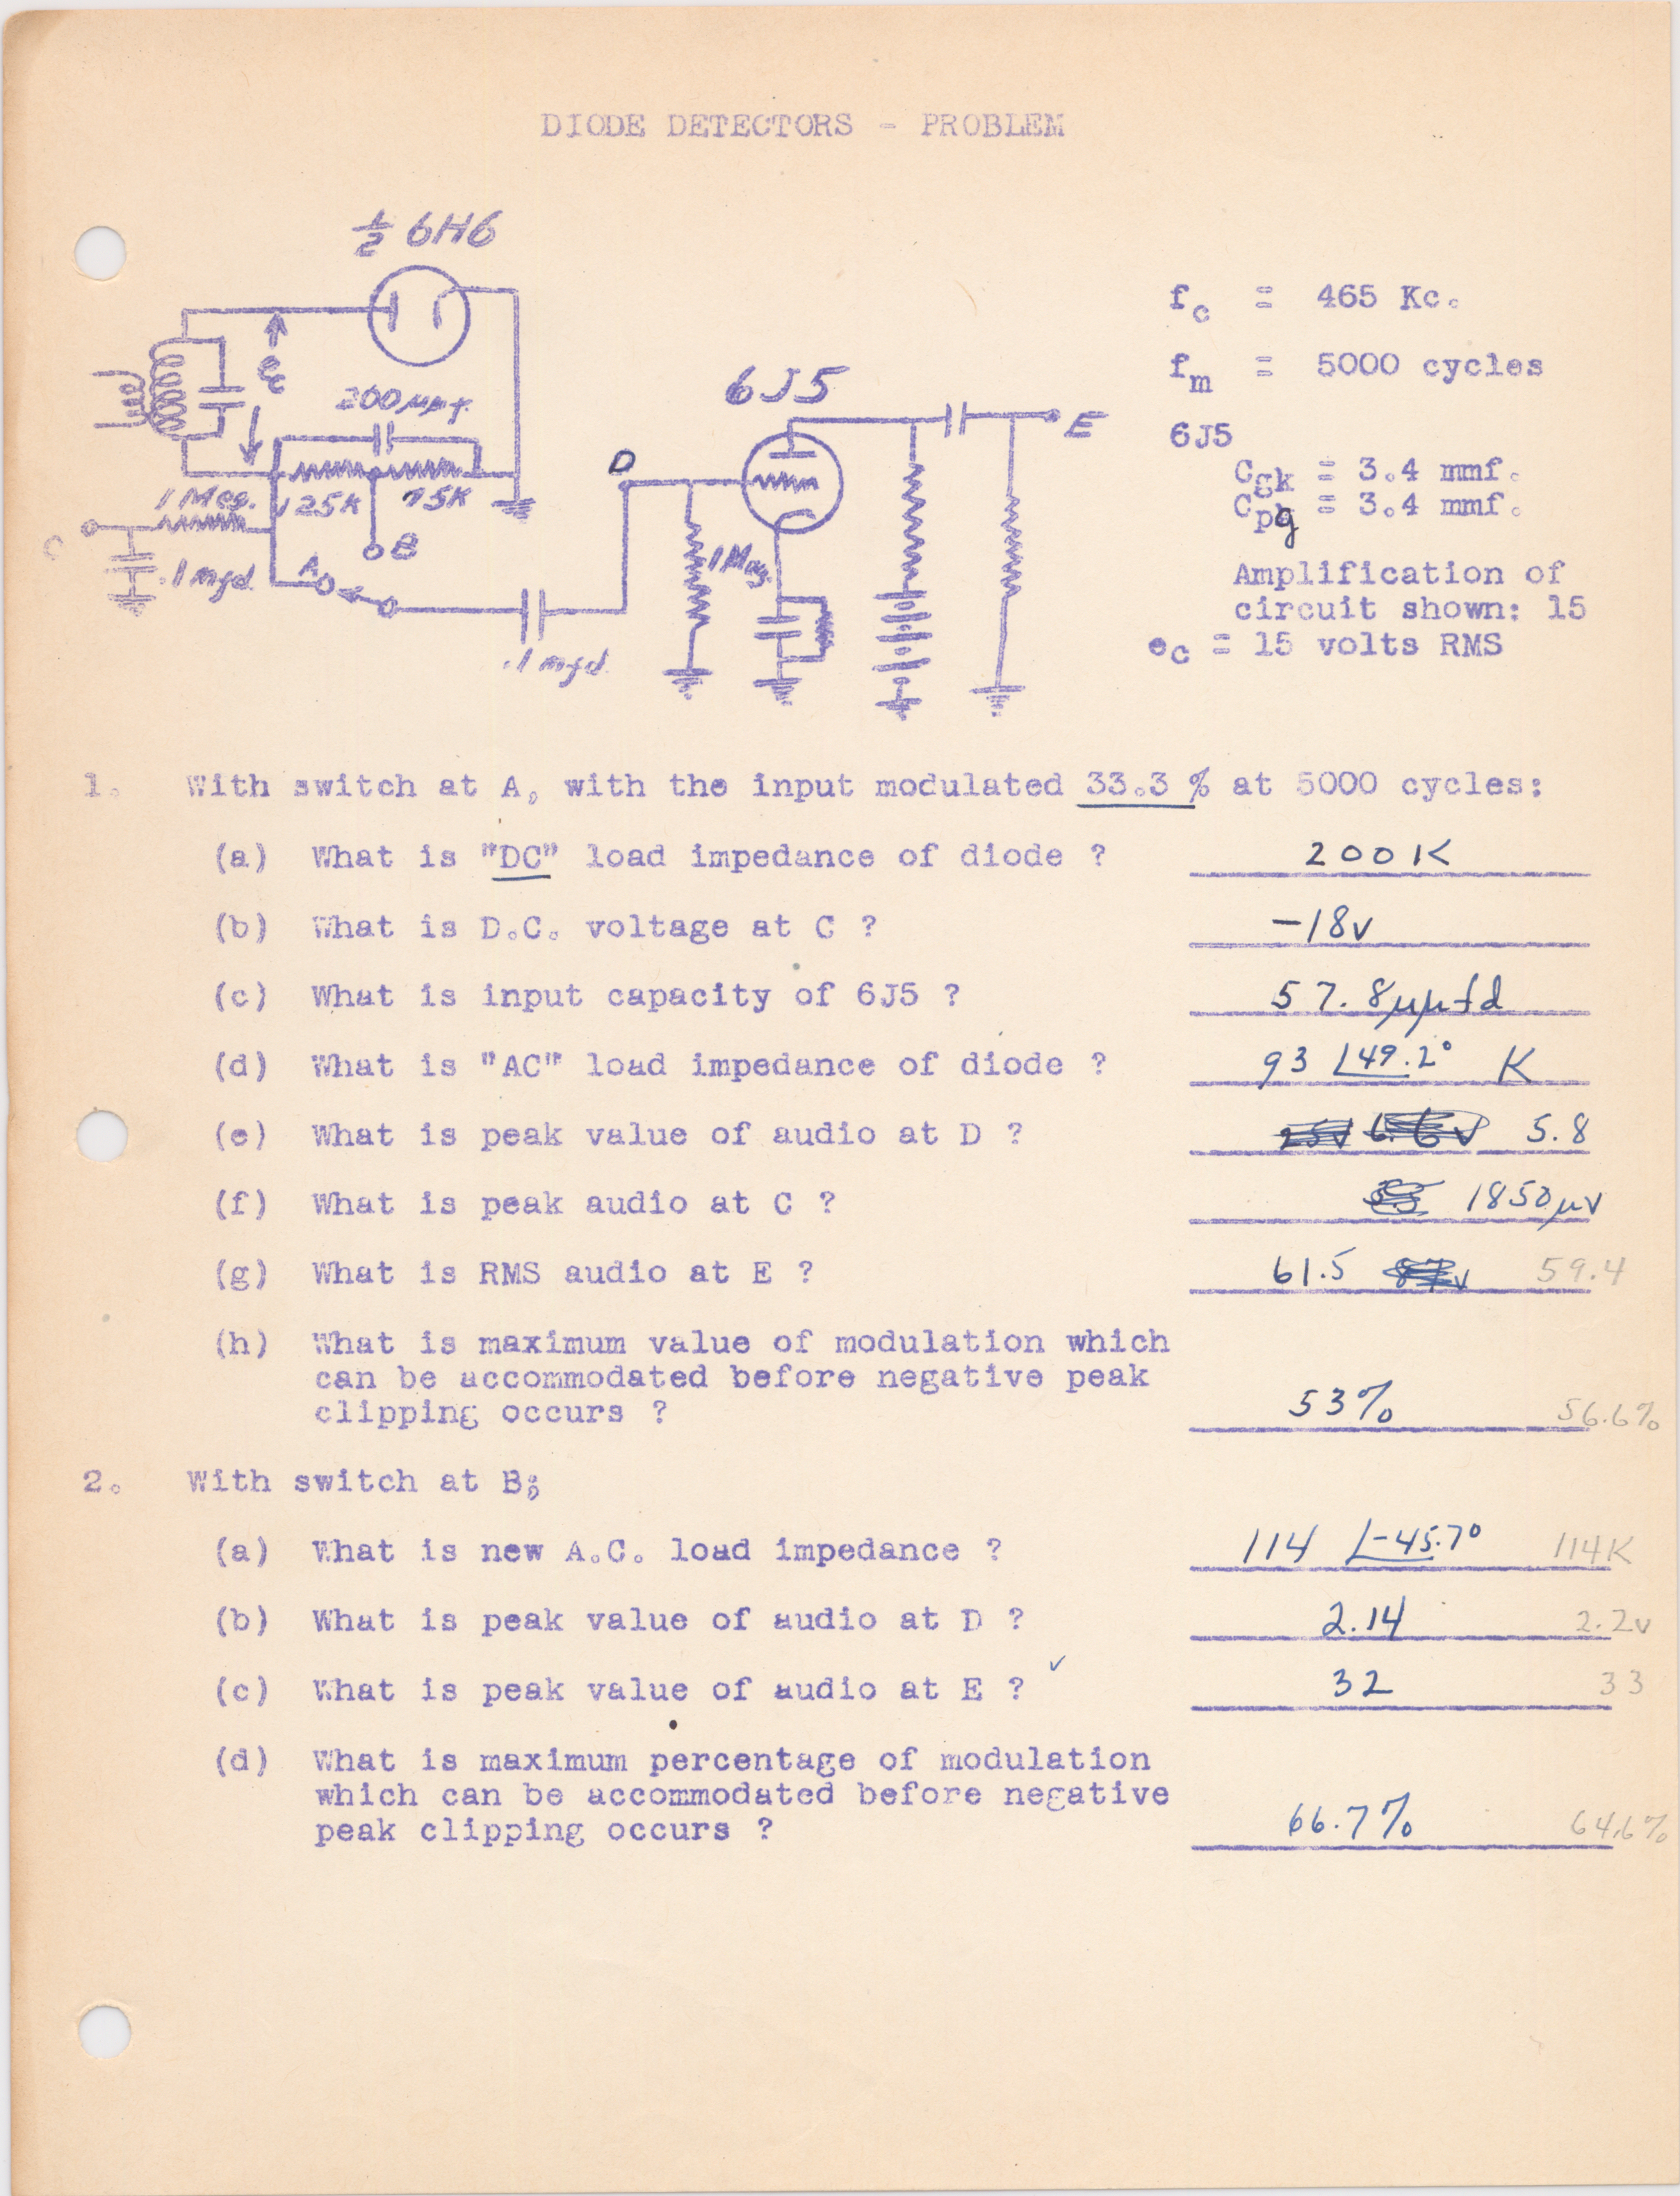 DIODE DETECTORS - PROBLEM
½ 6H6
200 μμf.
1 Meg.
125K
75K
C
.1 mfd.
A
B
.1 mfd.
D
6J5
1 Meg.
E
fc = 465 Kc.
fm = 5000 cycles
6J5
Cgk = 3.4 mmf.
Cpg = 3.4 mmf.
Amplification of
circuit shown: 15
ec = 15 volts RMS
1. With switch at A, with the input modulated 33.3 % at 5000 cycles:
(a) What is "DC" load impedance of diode ? 200K
(b) What is D.C. voltage at C ? -18v
(c) What is input capacity of 6J5 ? 57.8μμfd
(d) What is "AC" load impedance of diode ? 93 ∠49.2° K
(e) What is peak value of audio at D ? 5.8
(f) What is peak audio at C ? 1850μv
(g) What is RMS audio at E ? 61.5 59.4
(h) What is maximum value of modulation which
can be accommodated before negative peak
clipping occurs ? 53% 56.6%
2. With switch at B;
(a) What is new A.C. load impedance ? 114 ∠-45.7° 114K
(b) What is peak value of audio at D ? 2.14 2.2v
(c) What is peak value of audio at E ? ✓ 32 33
(d) What is maximum percentage of modulation
which can be accommodated before negative
peak clipping occurs ? 66.7% 64.6%